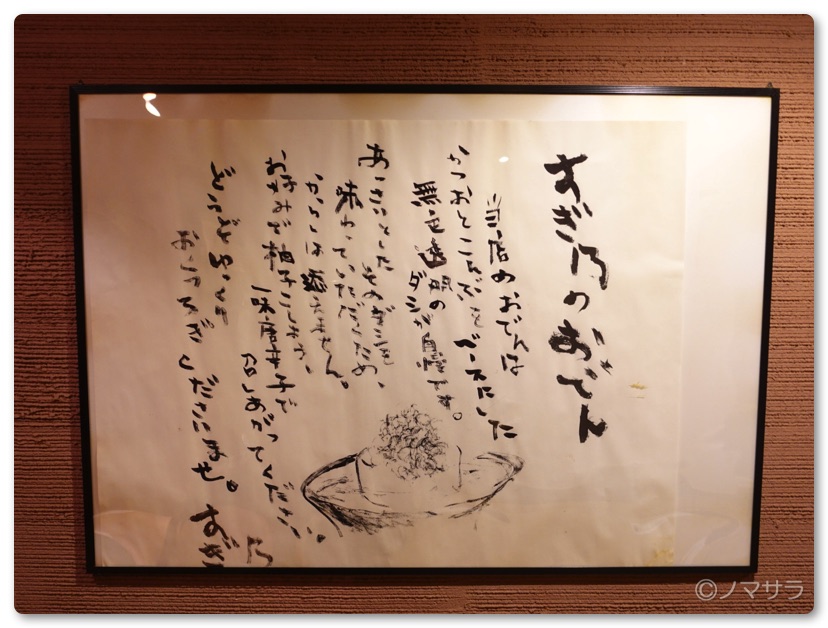 すぎ乃のおでん
当店のおでんは
かつおとこんぶをベースにした
無色透明の
ダシが自慢です。
あっさりとした
そのダシを
味わっていただくため、
からしは添えません。
お好みで柚子こしょう、
一味唐辛子で
召しあがってください。
どうぞゆっくり
おくつろぎくださいませ。
すぎ乃
©ノマサラ